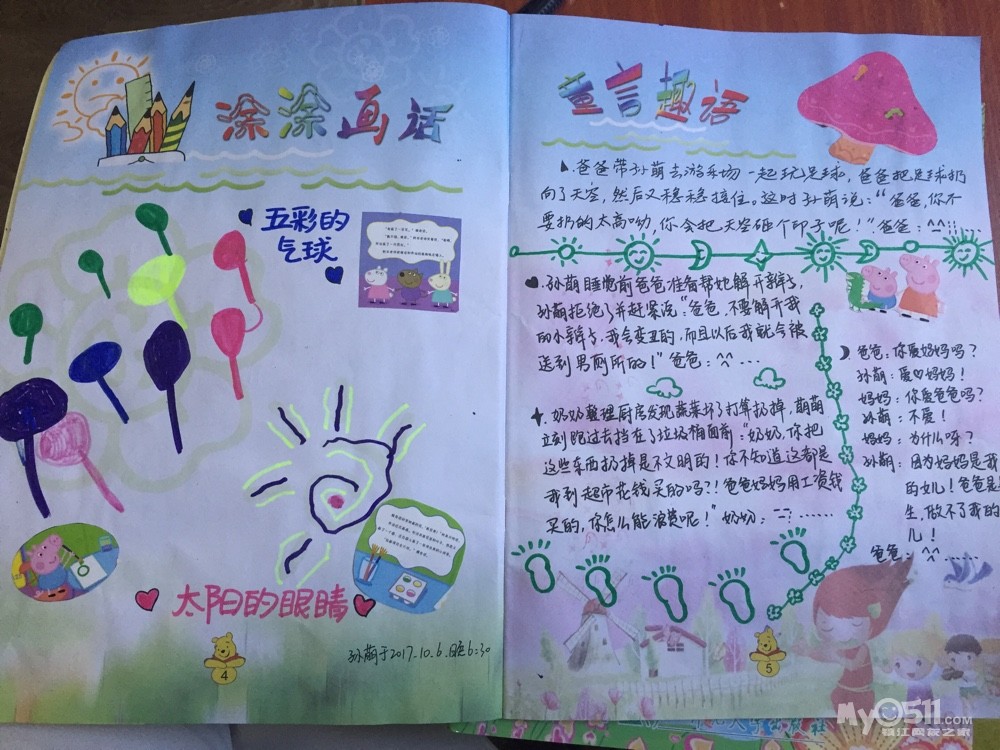 涂涂画话
五彩的
气球
太阳的眼睛
孙萌于2017.10.6.晚6:30
4
童言趣语
爸爸带孙萌去游乐场一起玩足球,爸爸把足球扔
向了天空,然后又稳稳接住。这时孙萌说:“爸爸,你不
要扔的太高呦,你会把天空砸个印子呢!”爸爸:^^!!...
孙萌睡觉前爸爸准备帮她解开辫子,
孙萌拒绝了并赶紧说:“爸爸,不要解开我
的小辫子,我会变丑的,而且以后我就会被
送到男厕所的!”爸爸:^^...
奶奶整理厨房发现蔬菜坏了打算扔掉,萌萌
立刻跑过去挡在了垃圾桶面前:“奶奶,你把
这些东西扔掉是不文明的!你不知道这都是
我到超市花钱买的吗?!爸爸妈妈用工资钱
买的,你怎么能浪费呢!”奶奶:
爸爸:你爱妈妈吗?
孙萌:爱♡妈妈!
妈妈:你爱爸爸吗?
孙萌:不爱!
妈妈:为什么呀?
孙萌:因为妈妈是我
的女儿!爸爸是
生,做不了我的
儿!
爸爸:^^......
5
My0511.com
镇江网友之家